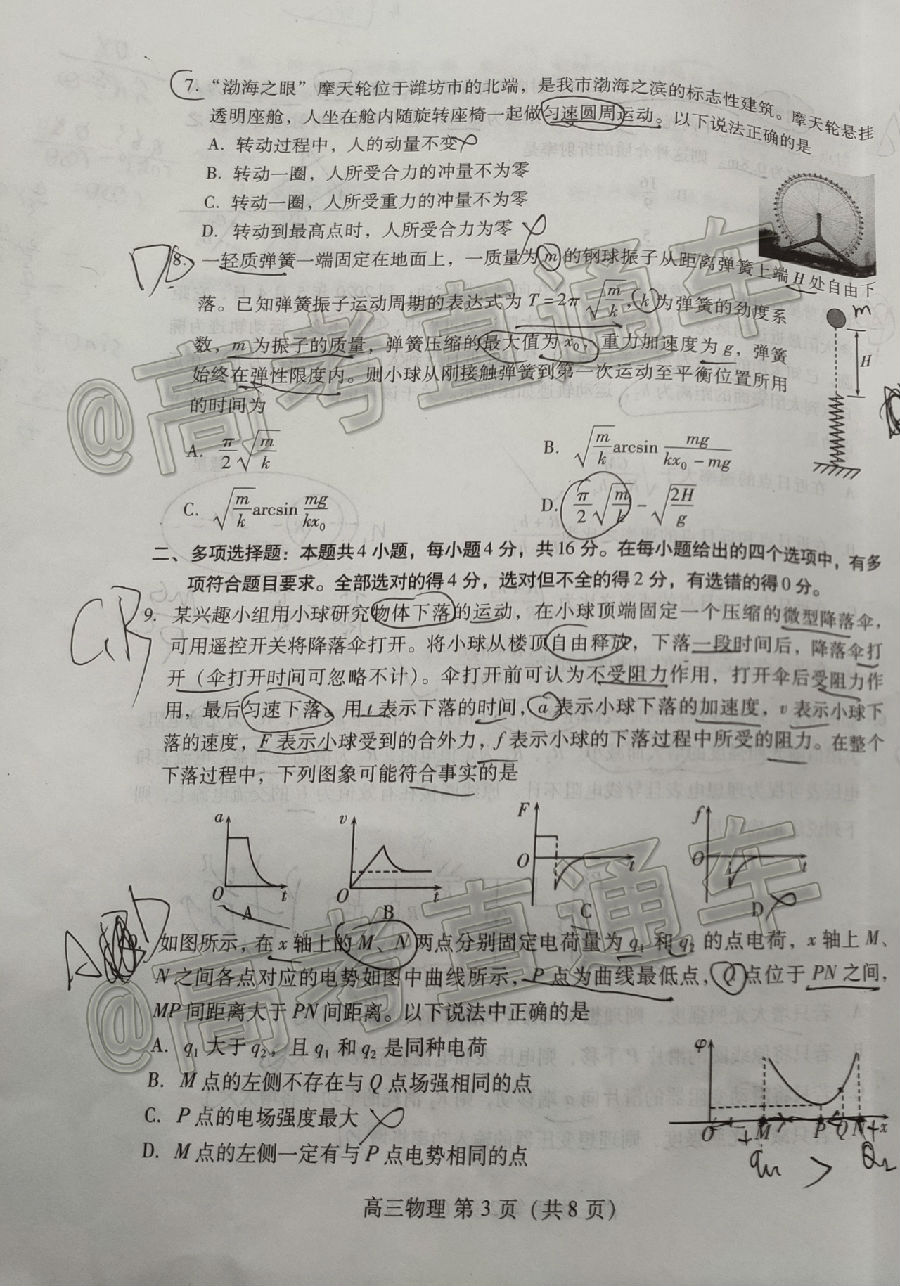 7. “渤海之眼”摩天轮位于潍坊市的北端，是我市渤海之滨的标志性建筑。摩天轮悬挂
透明座舱，人坐在舱内随旋转座椅一起做匀速圆周运动。以下说法正确的是
A. 转动过程中，人的动量不变
B. 转动一圈，人所受合力的冲量不为零
C. 转动一圈，人所受重力的冲量不为零
D. 转动到最高点时，人所受合力为零
D
8. 一轻质弹簧一端固定在地面上，一质量为 m 的钢球振子从距离弹簧上端 H 处自由下
落。已知弹簧振子运动周期的表达式为 T=2π√(m/k)，k 为弹簧的劲度系
m
数，m 为振子的质量，弹簧压缩的最大值为 x₀，重力加速度为 g，弹簧
H
始终在弹性限度内。则小球从刚接触弹簧到第一次运动至平衡位置所用
的时间为
A. π/2 √(m/k)
B. √(m/k) arcsin mg/(kx₀-mg)
C. √(m/k) arcsin mg/(kx₀)
D. π/2 √(m/k) - √(2H/g)
二、多项选择题：本题共 4 小题，每小题 4 分，共 16 分。在每小题给出的四个选项中，有多
项符合题目要求。全部选对的得 4 分，选对但不全的得 2 分，有选错的得 0 分。
9. 某兴趣小组用小球研究物体下落的运动，在小球顶端固定一个压缩的微型降落伞，
可用遥控开关将降落伞打开。将小球从楼顶自由释放，下落一段时间后，降落伞打
开（伞打开时间可忽略不计）。伞打开前可认为不受阻力作用，打开伞后受阻力作
用，最后匀速下落。用 t 表示下落的时间，a 表示小球下落的加速度，v 表示小球下
落的速度，F 表示小球受到的合外力，f 表示小球的下落过程中所受的阻力。在整个
下落过程中，下列图象可能符合事实的是
a O t A
v O t B
F O t C
f O t D
如图所示，在 x 轴上的 M、N 两点分别固定电荷量为 q₁ 和 q₂ 的点电荷，x 轴上 M、
N 之间各点对应的电势如图中曲线所示，P 点为曲线最低点，Q 点位于 PN 之间，
MP 间距离大于 PN 间距离。以下说法中正确的是
A. q₁ 大于 q₂，且 q₁ 和 q₂ 是同种电荷
B. M 点的左侧不存在与 Q 点场强相同的点
C. P 点的电场强度最大
D. M 点的左侧一定有与 P 点电势相同的点
φ
O M P Q N x
高三物理 第 3 页（共 8 页）
@高考直通车
@高考直通车